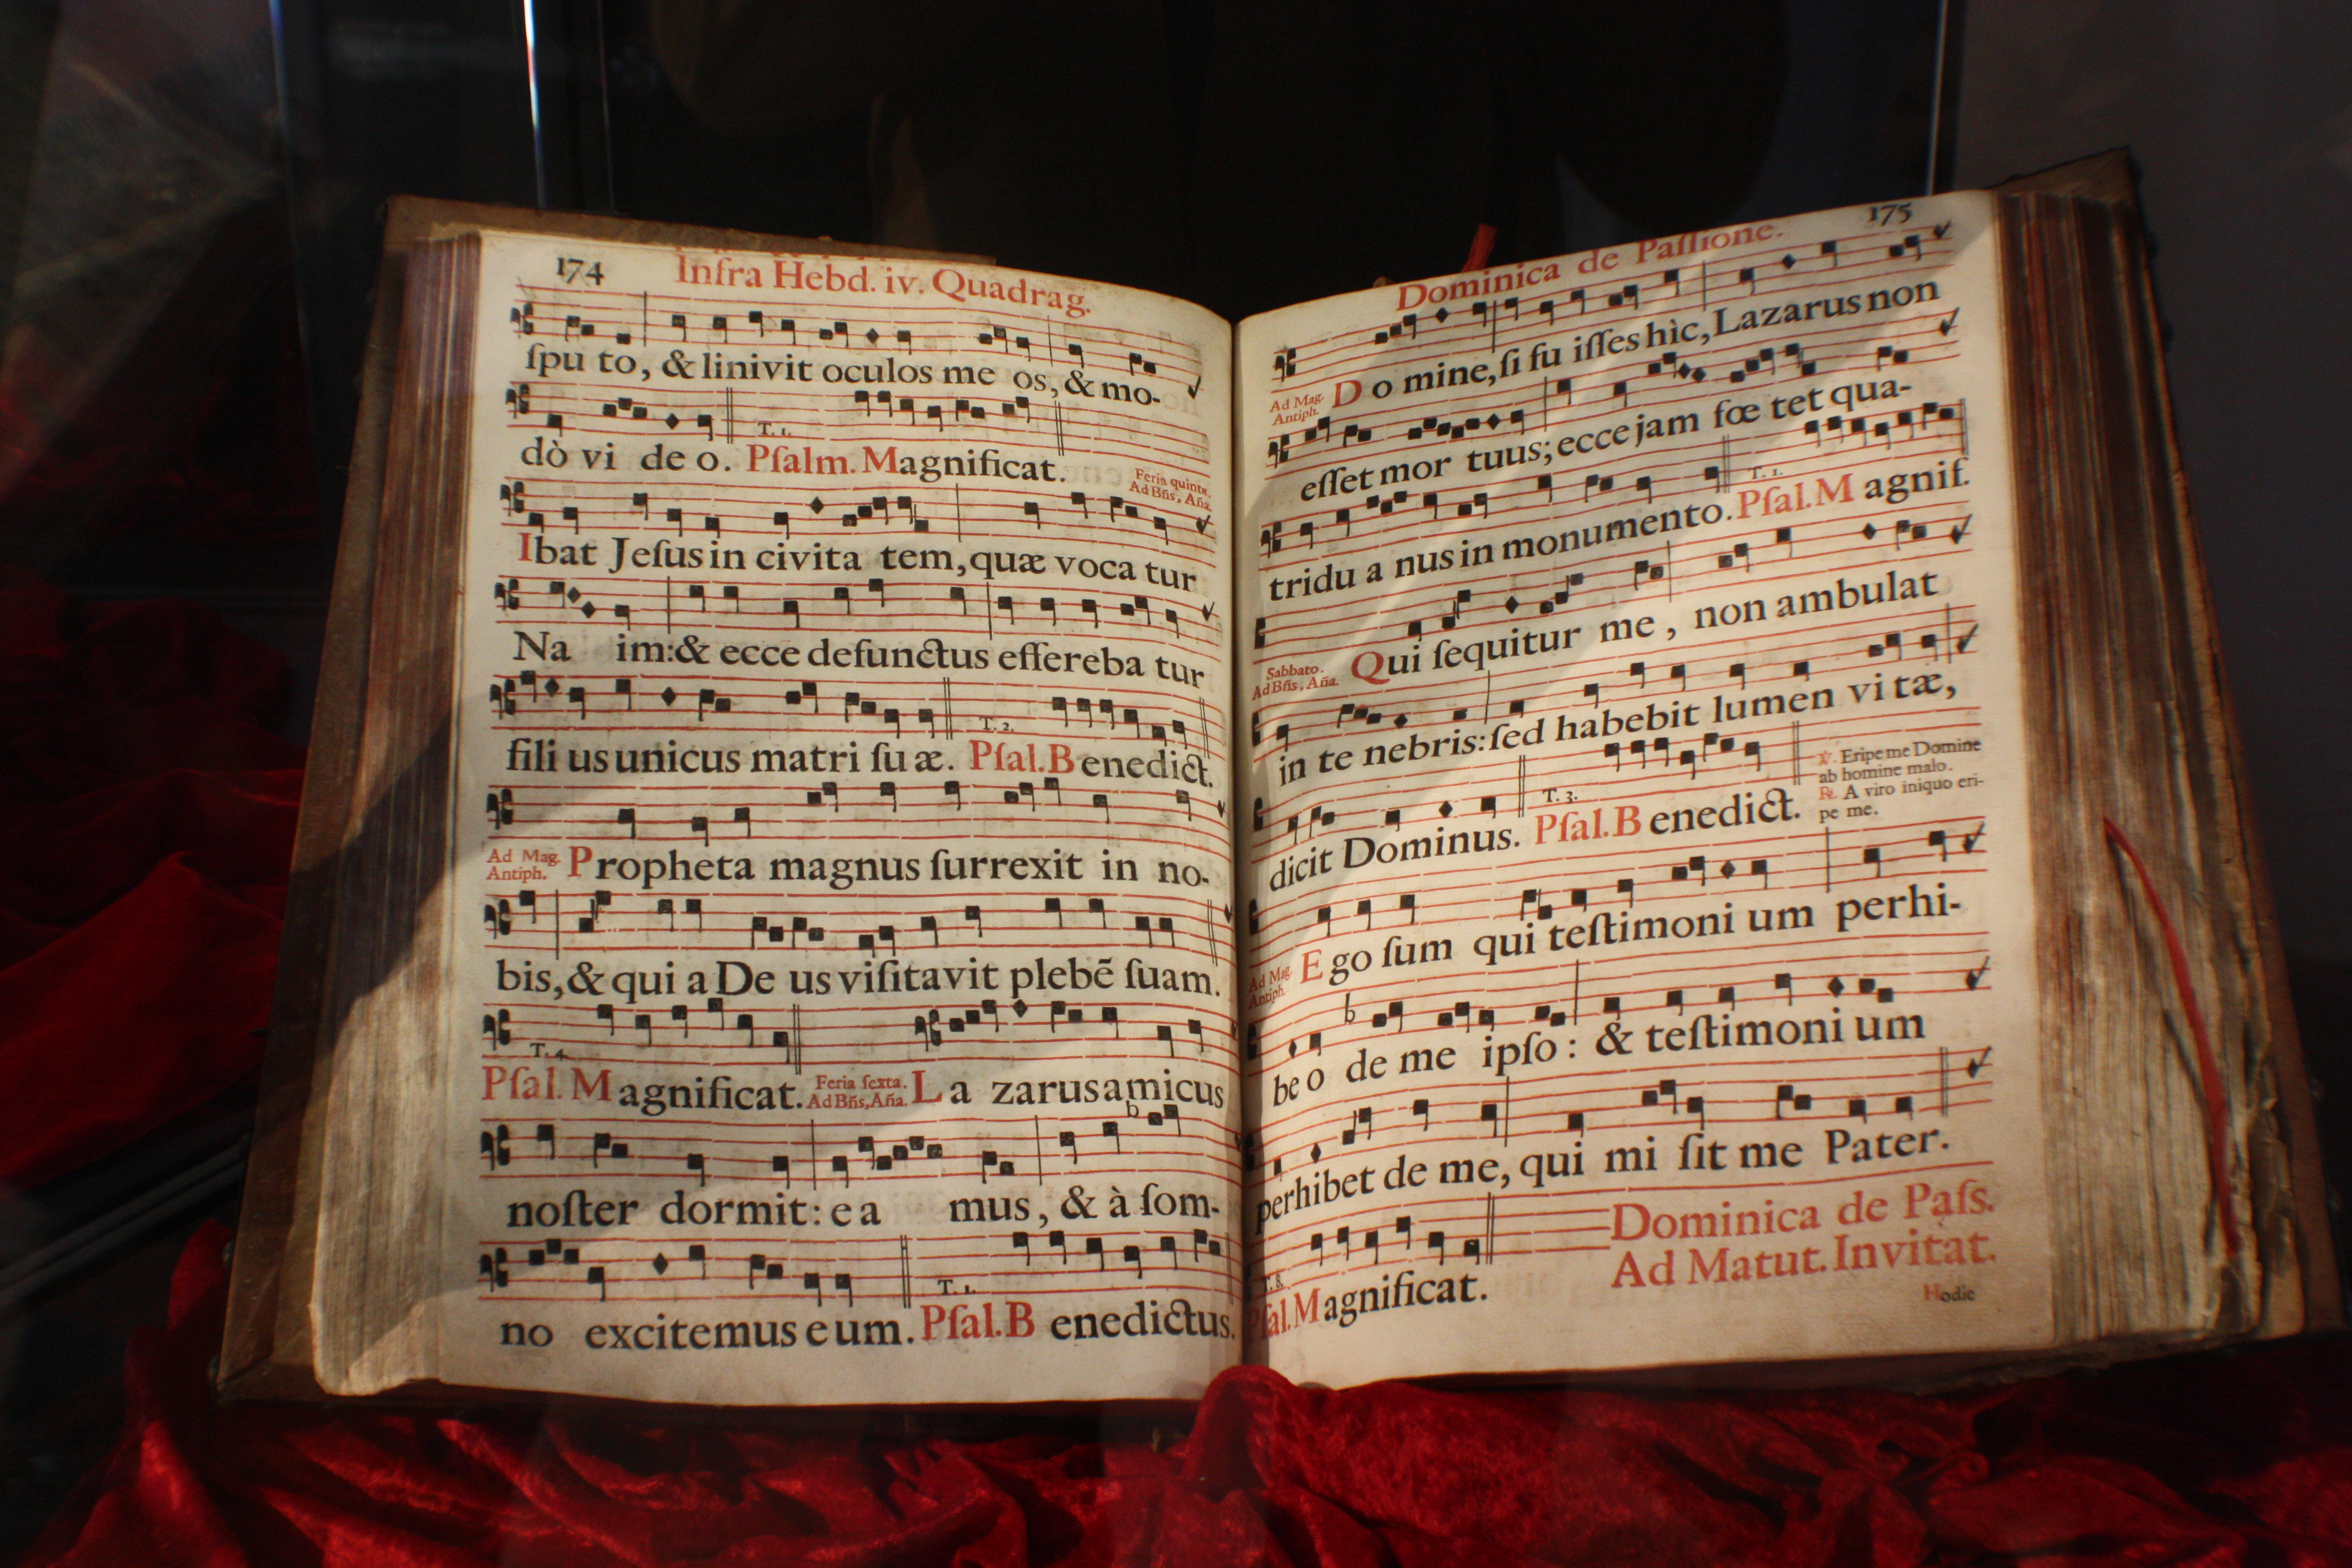 174
Infra Hebd. iv. Quadrag.
ſpu to, & linivit oculos me os, & mo-
T. 1.
dò vi de o. Pſalm. Magnificat.
Feria quinta.
Ad Bñs, Aña.
Ibat Jeſus in civita tem, quæ voca tur
Na im: & ecce defunctus effereba tur
T. 2.
fili us unicus matri ſu æ. Pſal. Benedict.
Ad Mag.
Antiph.
Propheta magnus ſurrexit in no-
bis, & qui a De us viſitavit plebē ſuam.
T. 4.
Pſal. Magnificat. Feria ſexta.
Ad Bñs, Aña.
La zarus amicus
b
noſter dormit: e a mus, & à ſom-
T. 1.
no excitemus eum. Pſal. B enedictus.
175
Dominica de Paſſione.
Ad Mag.
Antiph.
D o mine, ſi fu iſſes hìc, Lazarus non
eſſet mor tuus; ecce jam fœ tet qua-
T. 1.
tridu a nus in monumento. Pſal. M agnif.
Sabbato.
Ad Bñs, Aña.
Qui ſequitur me, non ambulat
in te nebris: ſed habebit lumen vi tæ,
T. 3.
dicit Dominus. Pſal. B enedict.
℣. Eripe me Domine
ab homine malo.
℟. A viro iniquo eri-
pe me.
Ad Mag.
Antiph.
E go ſum qui teſtimoni um perhi-
b
be o de me ipſo: & teſtimoni um
perhibet de me, qui mi ſit me Pater.
T. 8.
Pſal. Magnificat.
Dominica de Paſs.
Ad Matut. Invitat.
Hodie